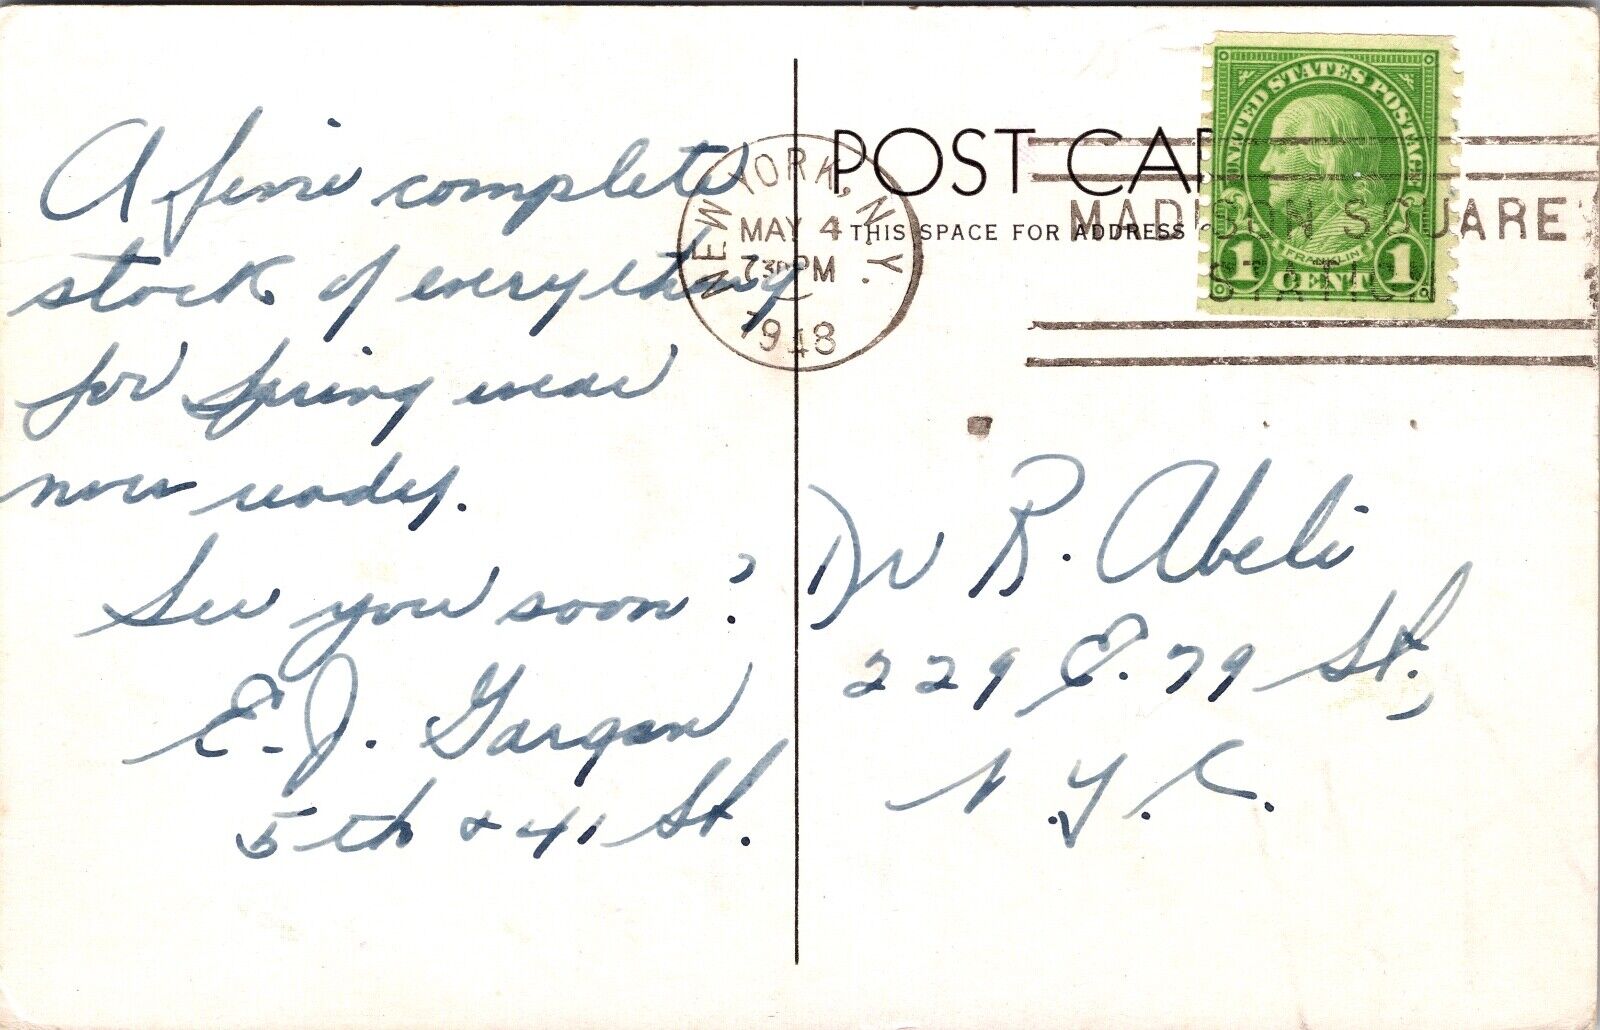 A fine complete
stock of everything
for Spring wear
now ready.
See you soon?
E. J. Gargan
5th & 41 St.
POST CAR
THIS SPACE FOR ADDRESS
NEW YORK, N.Y.
MAY 4
730PM
1948
MADISON SQUARE
STATION
UNITED STATES POSTAGE
FRANKLIN
1 CENT 1
Dr R. Abeli
229 E. 79 St.,
N.Y.C.